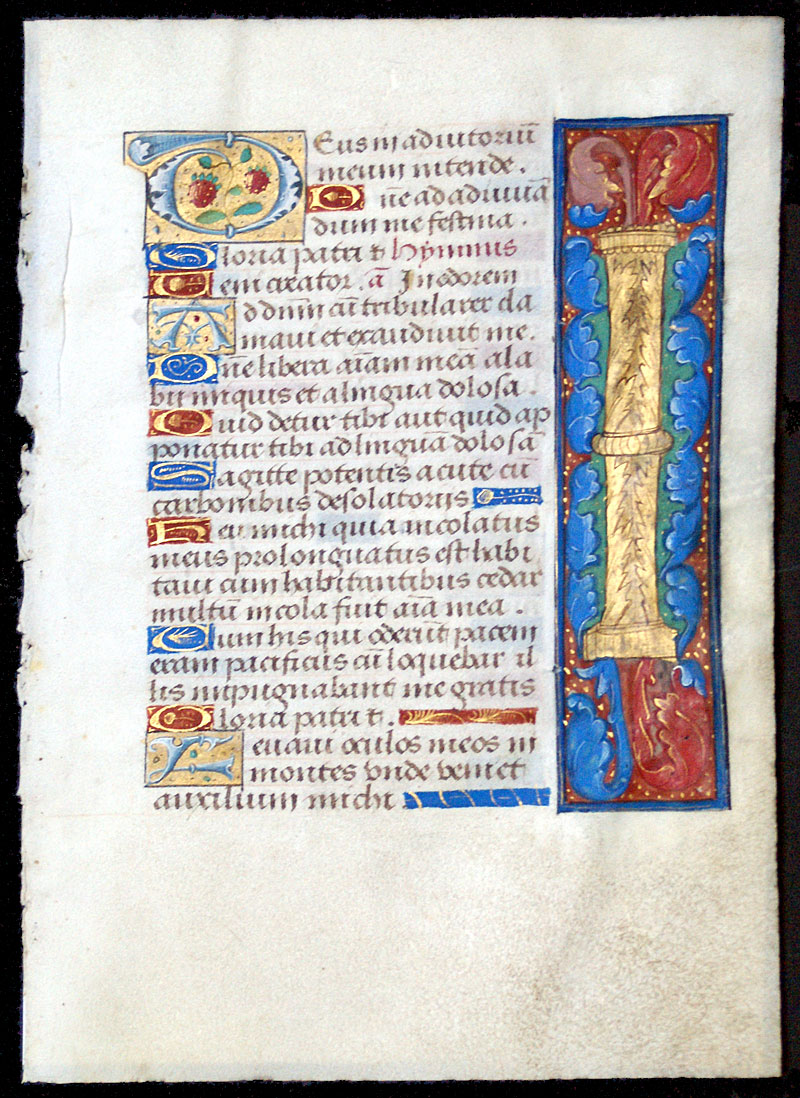 Deus in adiutoriū
meum intende .
Dne ad adiuuā
dum me festina .
Gloria patri &. hymnus
Veni creator . ā In odorem
Ad dnm cū tribularer cla
maui et exaudiuit me .
Dne libera aīam meā a la
biis iniquis et a lingua dolosa .
Quid detur tibi aut quid ap
ponatur tibi ad linguā dolosā
Sagitte potentis acute cū
carbonibus desolatoriis
Heu michi quia incolatus
meus prolonguatus est habi
taui cum habitantibus cedar
multū incola fuit aīa mea .
Cum his qui oderūt pacem
eram pacificus cū loquebar il
lis inpugnabant me gratis
Gloria patri &.
Leuaui oculos meos in
montes vnde veniet
auxilium michi